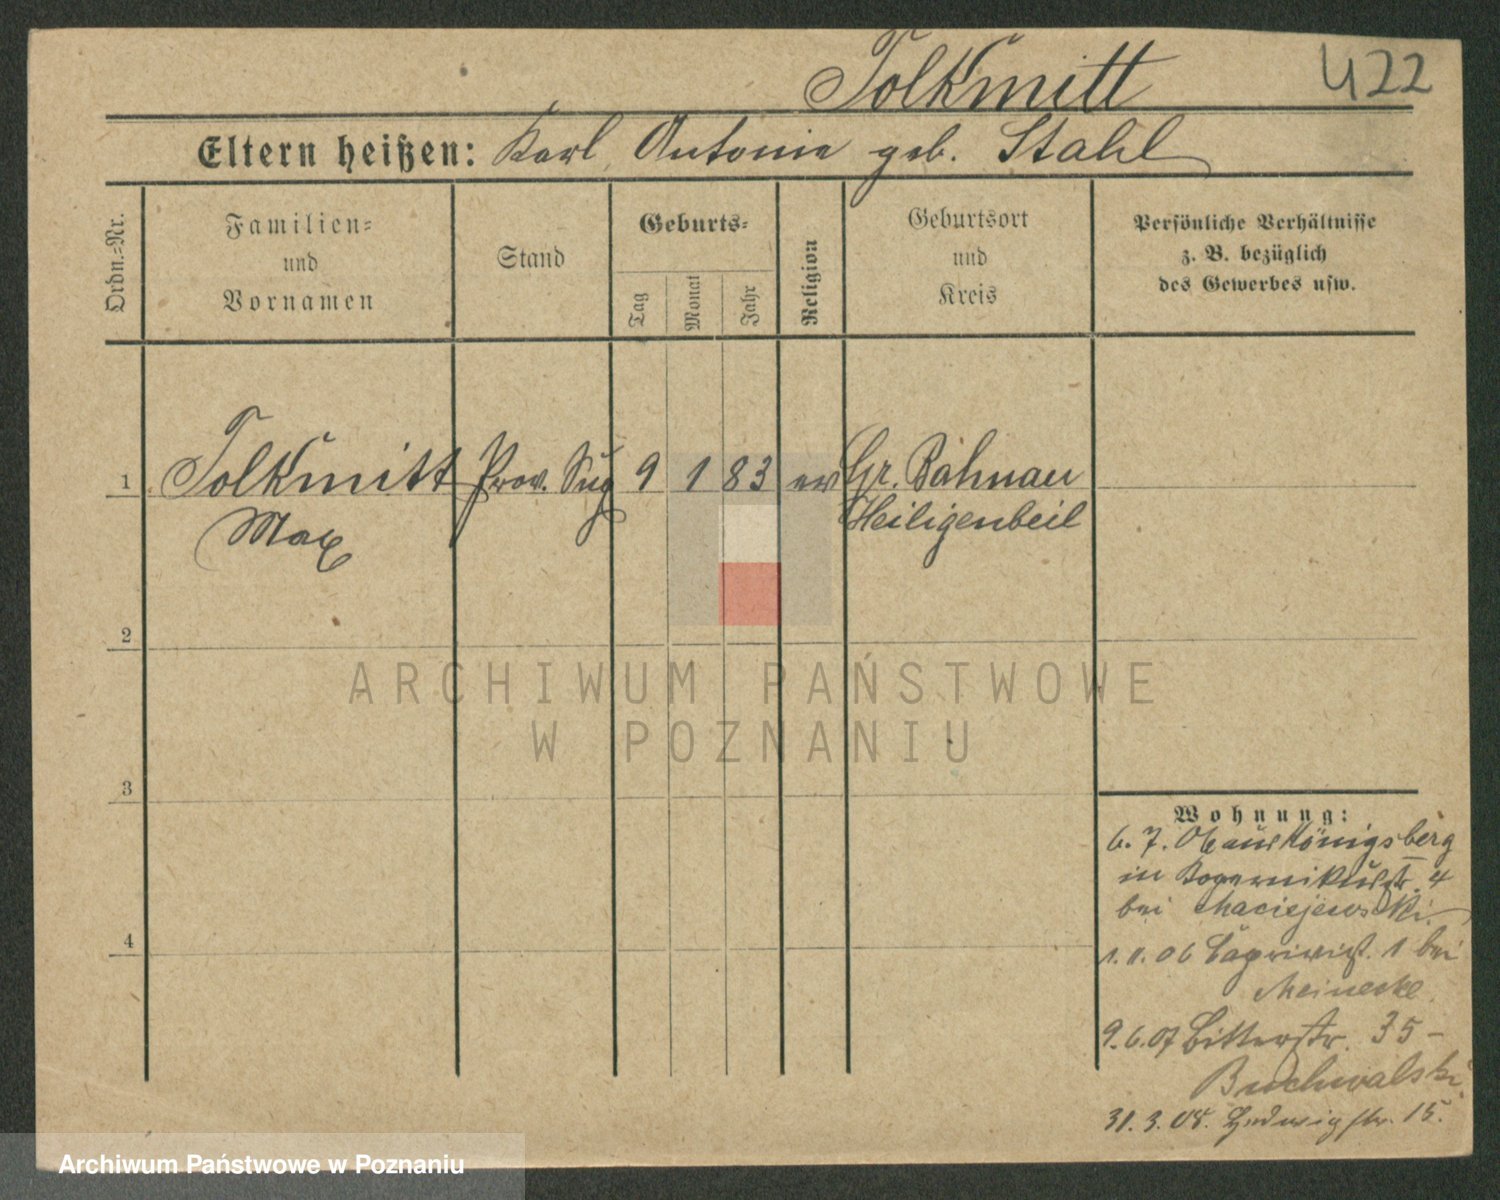 Tolkmitt
422
Eltern heißen: Karl, Antonie geb. Stahl
Ordn.-Nr.
Familien-
und
Vornamen
Stand
Geburts-
Tag
Monat
Jahr
Religion
Geburtsort
und
Kreis
Persönliche Verhältnisse
z. B. bezüglich
des Gewerbes usw.
1 Tolkmitt Prov. 9 1 83 ev Gr. Bahnau
Max Heiligenbeil
2
3
4
Wohnung:
6. 7. 06 aus Königsberg
in 4
bei Maciejewski
1. 11. 06 1 bei
Meinecke
9. 6. 07 Bitterstr. 35 -
Buchwalski
31. 3. 08. Ludwigstr. 15.
ARCHIWUM PAŃSTWOWE
W POZNANIU
Archiwum Państwowe w Poznaniu